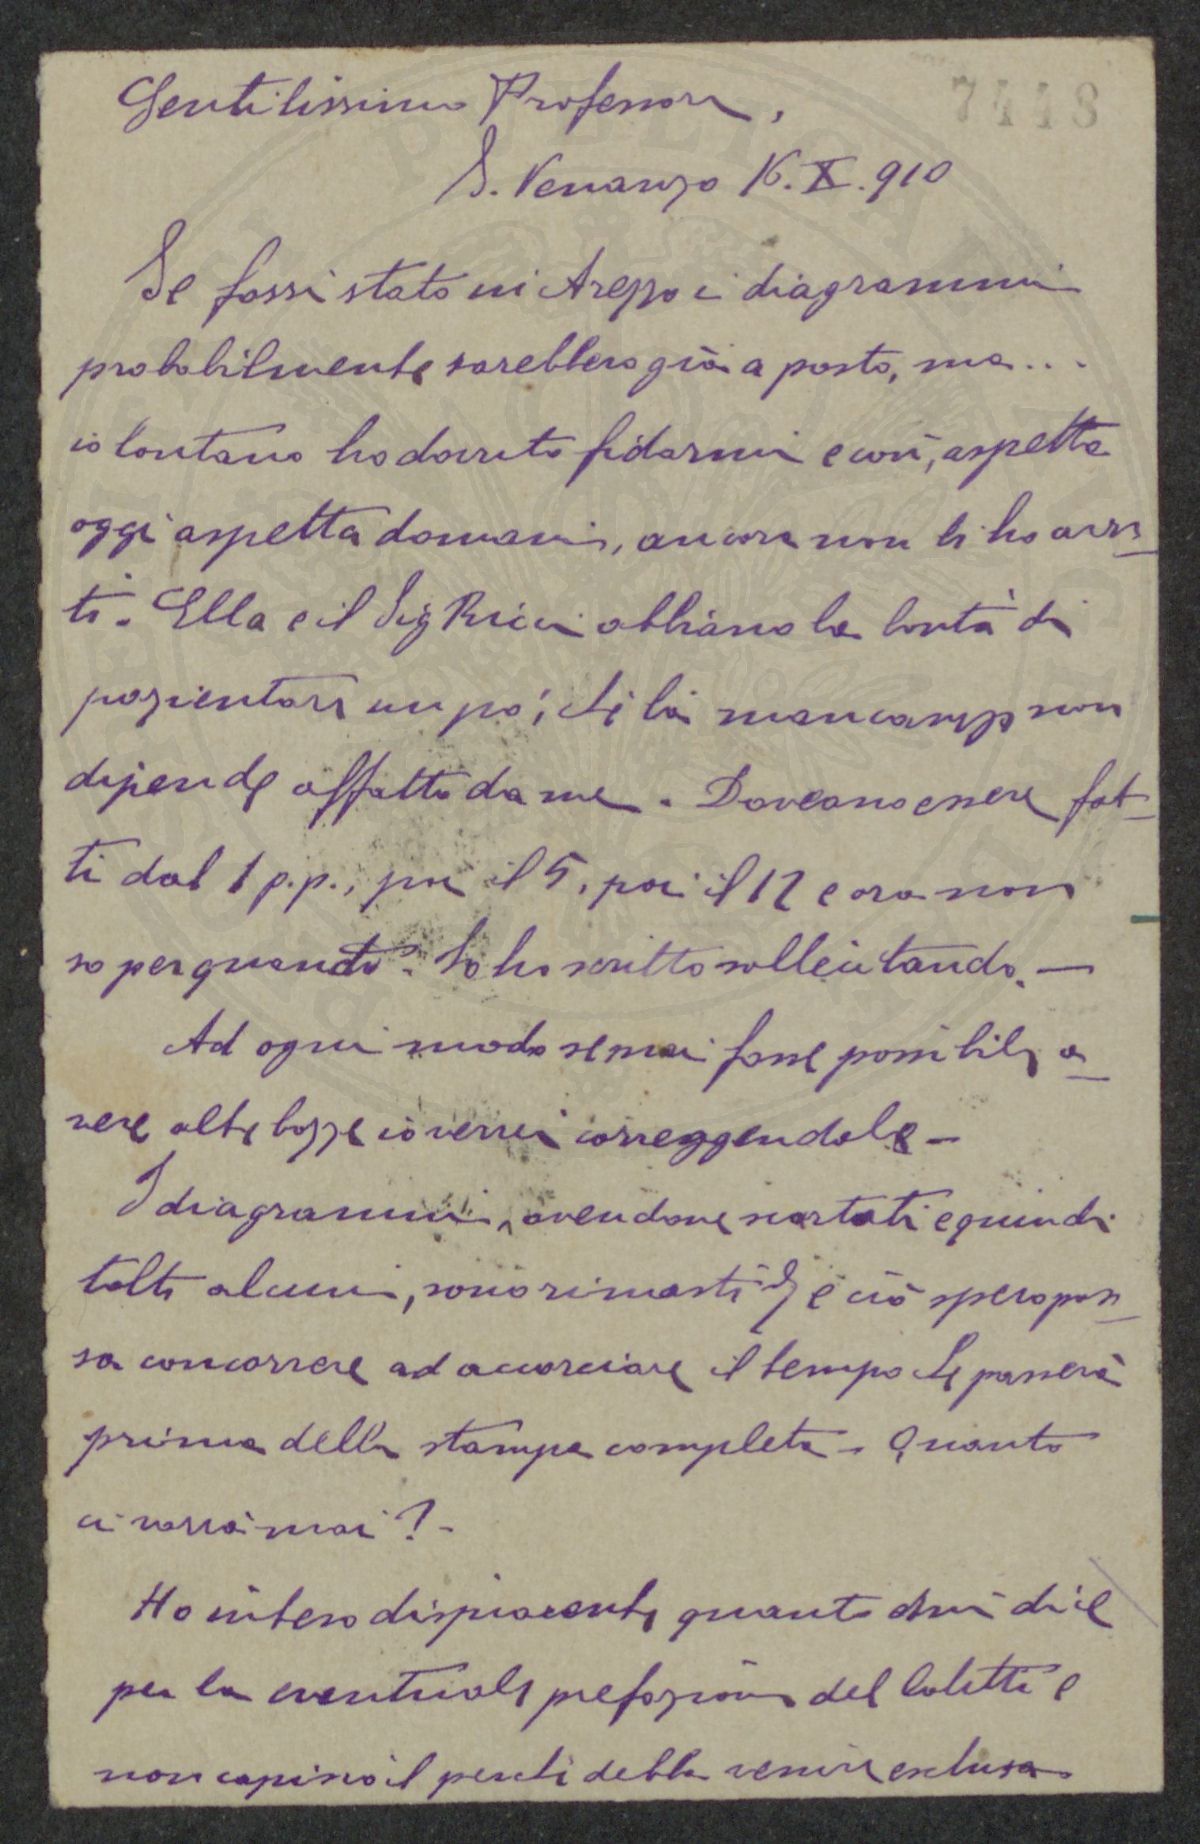 7443
Gentilissimo Professore,
S. Venanzo 16. X. 910
Se fossi stato in Arezzo i diagrammi
probabilmente sarebbero già a posto, ma...
io lontano ho dovuto fidarmi e così, aspetta
oggi aspetta domani, ancora non li ho avu-
ti. Ella e il Sig Ricci abbiano la bontà di
pazientare un po', chè la mancanza non
dipende affatto da me. Doveano essere fat-
ti dal 1 p.p., poi il 5, poi il 12 e ora non
so per quando. Io ho scritto sollecitando. —
Ad ogni modo se mai fosse possibile a-
vere altre bozze io verrei correggendole —
I diagrammi, avendone scartati e quindi
tolti alcuni, sono rimasti e ciò spero pos-
sa concorrere ad accorciare il tempo che passerà
prima della stampa completa. Quanto
ci vorrà mai? -
Ho inteso dispiacente quanto mi dice
per la eventuale prefazione del e
non capisco il perchè debba venire esclusa